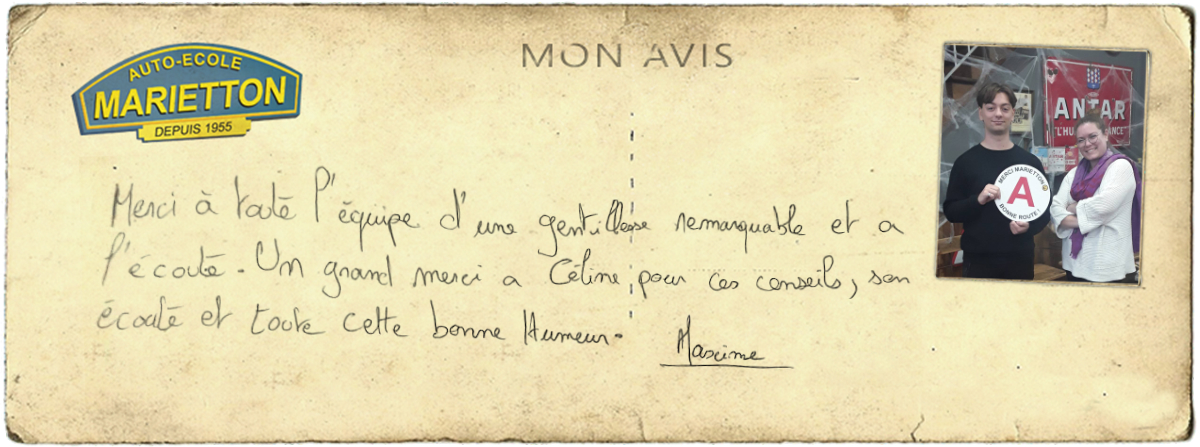 AUTO-ECOLE
MARIETTON
DEPUIS 1955
MON AVIS
Merci à toute l'équipe d'une gentillesse remarquable et a
l'écoute. Un grand merci a Céline pour ces conseils, son
écoute et toute cette bonne Humeur.
Maxime
ANTAR
"L'HU
ANCE"
MERCI MARIETTON
A
BONNE ROUTE!